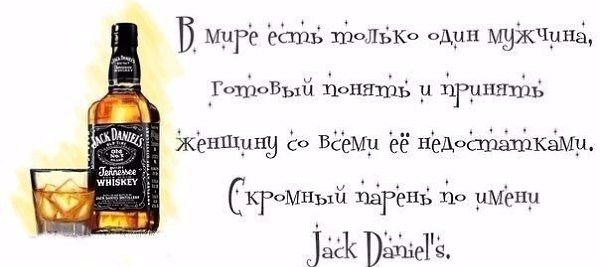 В мире есть только один мужчина,
готовый понять и принять
женщину со всеми её недостатками.
Скромный парень по имени
Jack Daniel's.
JACK DANIEL'S
OLD TIME
Old
No. 7
Tennessee
WHISKEY